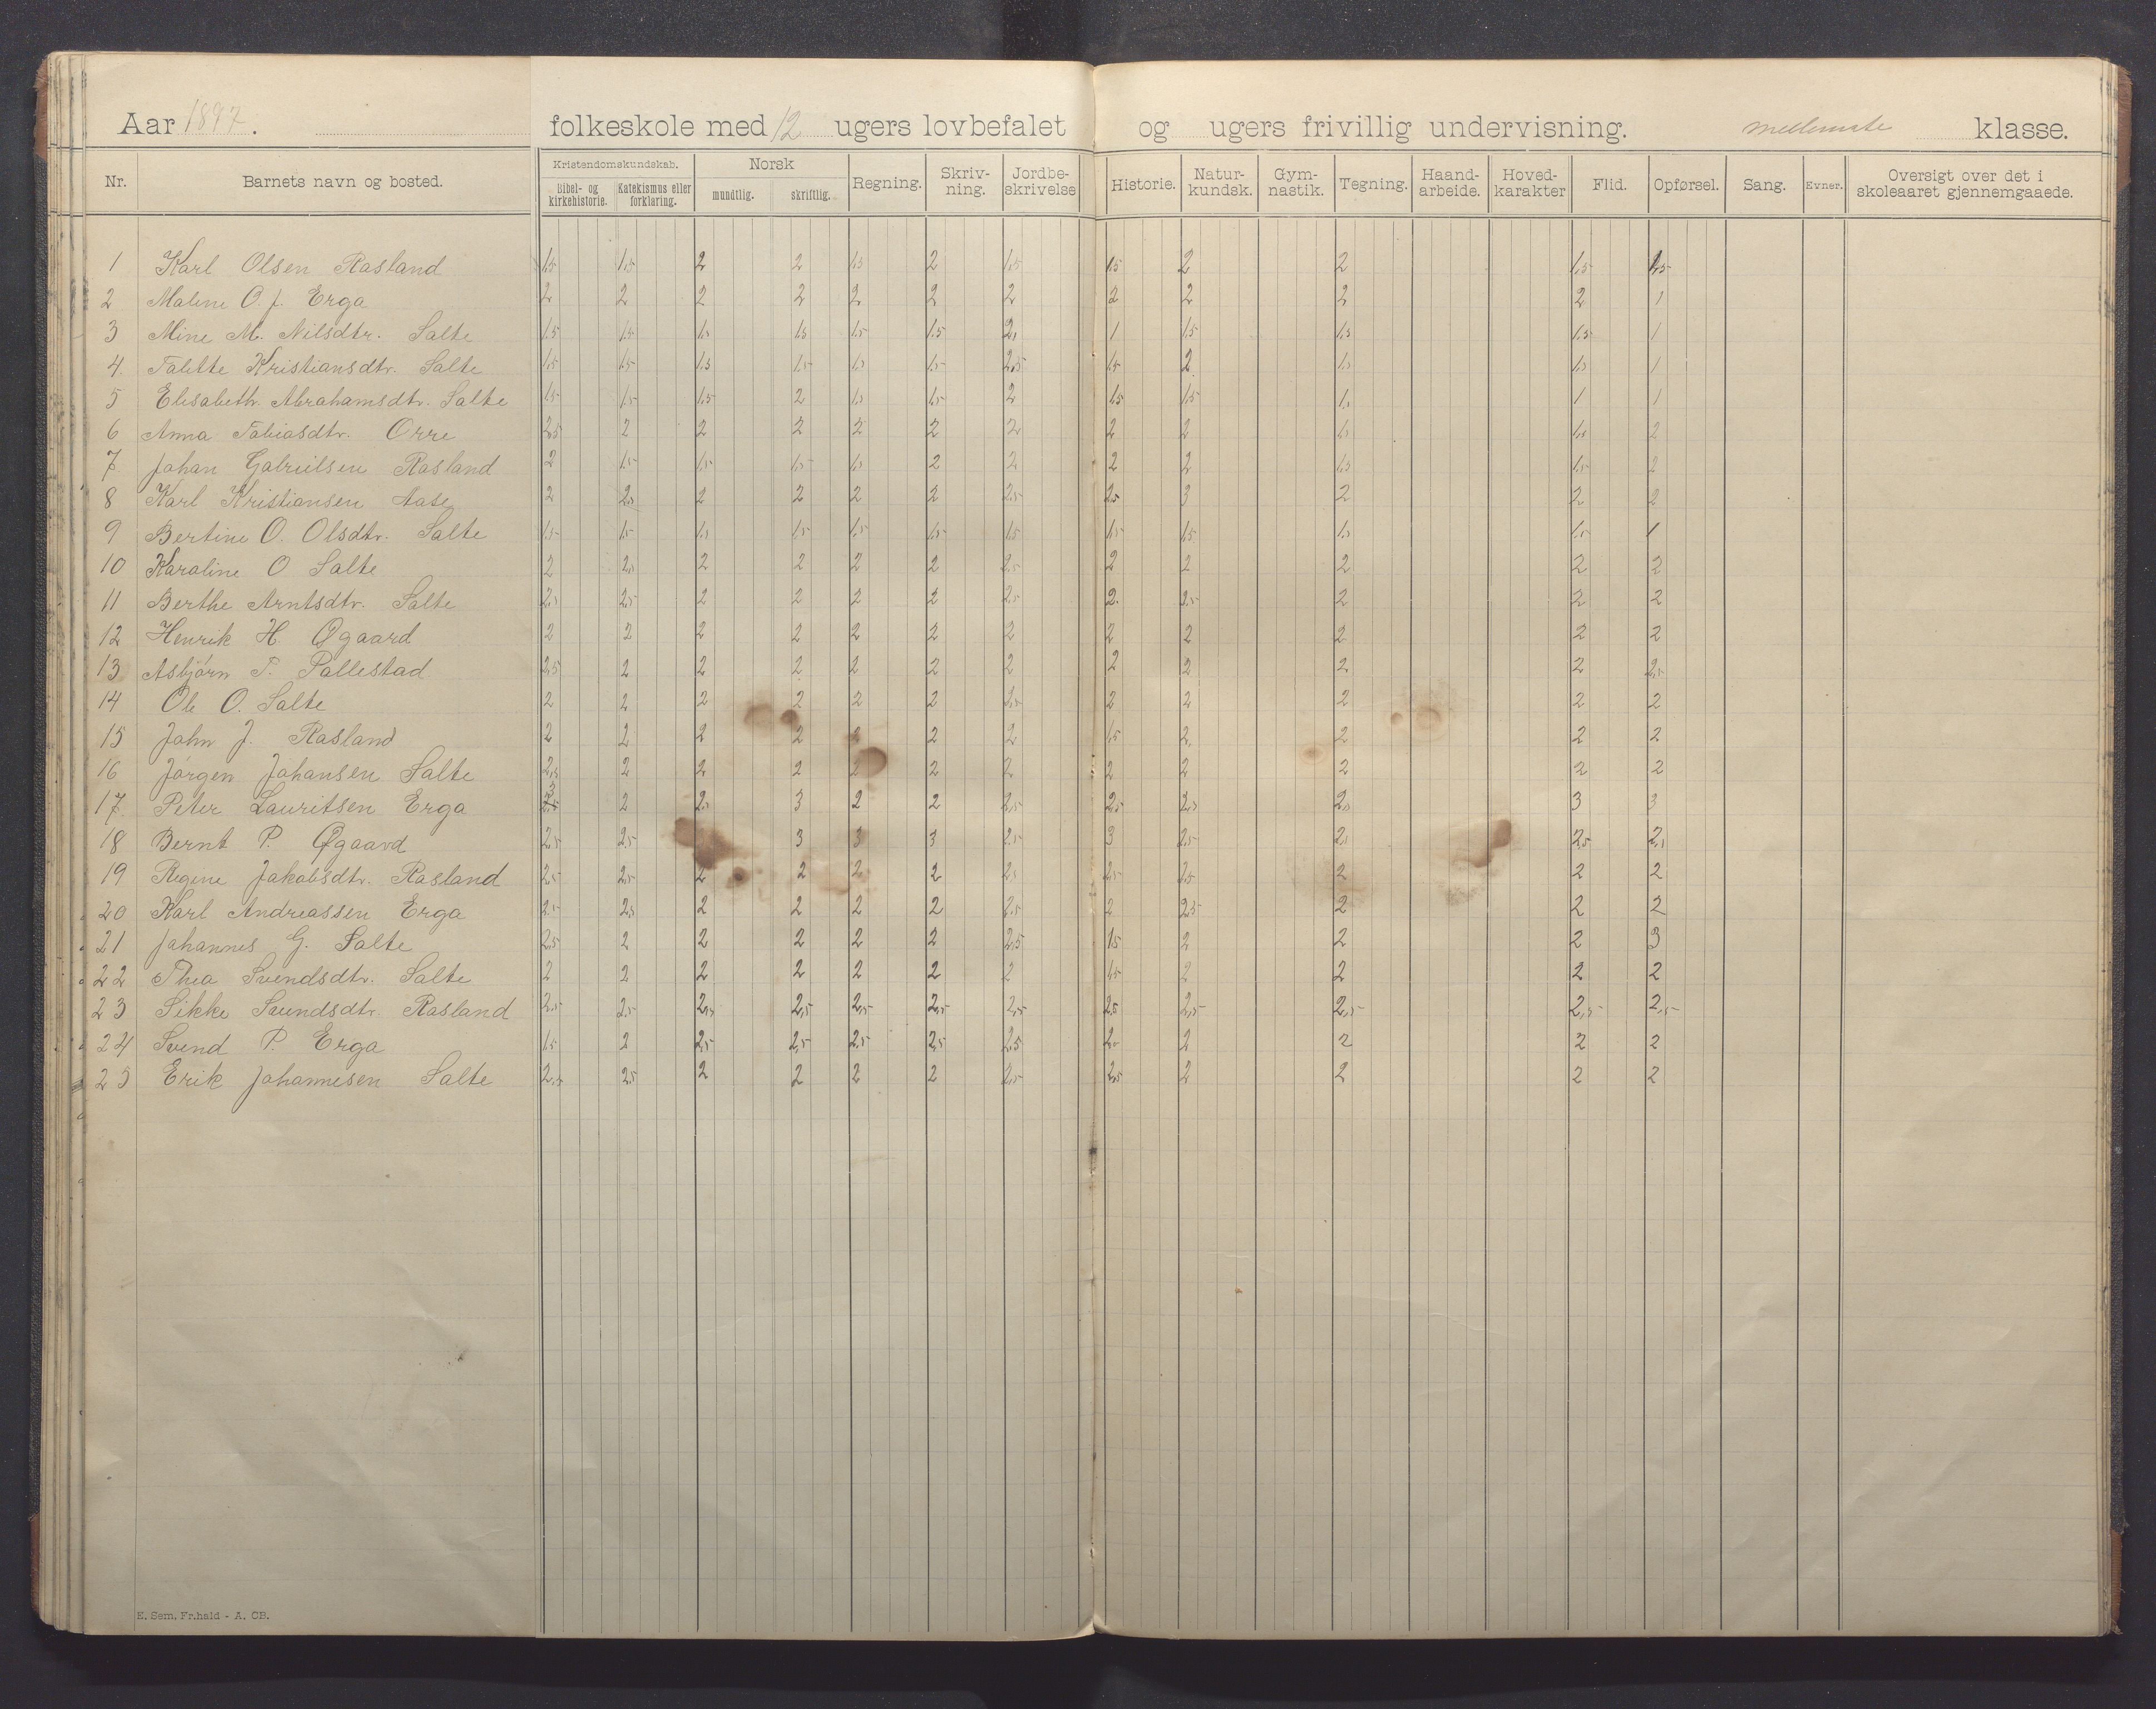 Aar 1897. folkeskole med 12 ugers lovbefalet og ugers frivillig undervisning. mellemste klasse.
Nr. Barnets navn og bosted. Kristendomskundskab. Bibel- og kirkehistorie. Katekismus eller forklaring. Norsk mundtlig. skriftlig. Regning. Skriv-ning. Jordbe-skrivelse Historie. Natur-kundsk. Gym-nastik. Tegning. Haand-arbeide. Hoved-karakter Flid. Opførsel. Sang. Evner. Oversigt over det i skoleaaret gjennemgaaede.
1 Karl Olsen Rasland 1,5 1,5 2 2 1,5 2 1,5 1,5 2 2 1,5 1,5
2 Malene O. J. Erga 2 2 2 2 2 2 2 2 2 2 2 1
3 Mine M. Nilsdtr. Salte 1,5 1,5 1,5 1,5 1,5 1,5 2, 1 1,5 1,5 1,5 1
4. Talette Kristiansdtr. Salte 1,5 1,5 1,5 1,5 1,5 1,5 2,5 1,5 2 1,5 1,5 1
5 Elisabeth Abrahamsdtr. Salte 1,5 1,5 1,5 2 1,5 1,5 2 1,5 1,5 1,5 1 1
6 Anna Tobiasdtr. Orre 2,5 2 2 2 2 2 2 2 2 1,5 1,5 2
7 Johan Gabrielsen Rasland 2 1,5 1,5 1,5 1,5 2 2 2 2 1,5 1,5 2
8 Karl Kristiansen Aase 2 2,5 2 2 2 2 2,5 2,5 3 2 2 2
9 Bertine O. Olsdtr. Salte 1,5 1,5 1,5 1,5 1,5 1,5 1,5 1,5 1,5 1,5 1,5 1
10 Karoline O Salte 2 2,5 2 2 2 2 2,5 2 2 2 2 2
11 Berthe Arntsdtr. Salte 2,5 2,5 2 2 2 2 2,5 2. 2,5 2 2 2
12 Henrik H Øgaard 2 2 2 2 2 2 2 2 2 2 2 2
13 Asbjørn T. Pallestad 2,5 2 2 2 2 2 2 2 2 2 2 2,5
14 Ole O. Salte 2 2 2 2 2 2 2,5 2 2 2 2 2
15 John J. Rasland 2 2 2 2 2 2 2 1,5 2. 2 2 2
16 Jørgen Johansen Salte 2,5 2 2 2 2 2 2 2 2 2 2 2
17 Peter Lauritsen Erga 2 2,5 3 2 2 2,5 2,5 2,5 2,5 3 3
18 Bernt P. Øgaard 2,5 2,5 3 3 3 2,5 3 2,5 2,5 2,5 2,5
19 Regine Jakobsdtr. Rasland 2,5 2,5 2 2 2 2 2,5 2,5 2,5 2 2 2
20 Karl Andreassen Erga 2,5 2,5 2 2 2 2 2,5 2 2,5 2 2 2
21 Johannes G. Salte 2,5 2 2 2 2 2 2,5 1,5 2 2 2 3
22 Thea Svendsdtr. Salte 2 2 2 2 2 2 2 1,5 2 2 2 2
23 Sikke Svendsdtr. Rasland 2,5 2,5 2,5 2,5 2,5 2,5 2,5 2,5 2,5 2,5 2,5 2,5
24 Svend P. Erga 1,5 2 2,5 2,5 2,5 2,5 2,5 2 2 2 2 2
25 Erik Johannesen Salte 2,5 2,5 2 2 2 2 2,5 2,5 2 2 2 2
E. Sem, Fr.hald - A. CB.